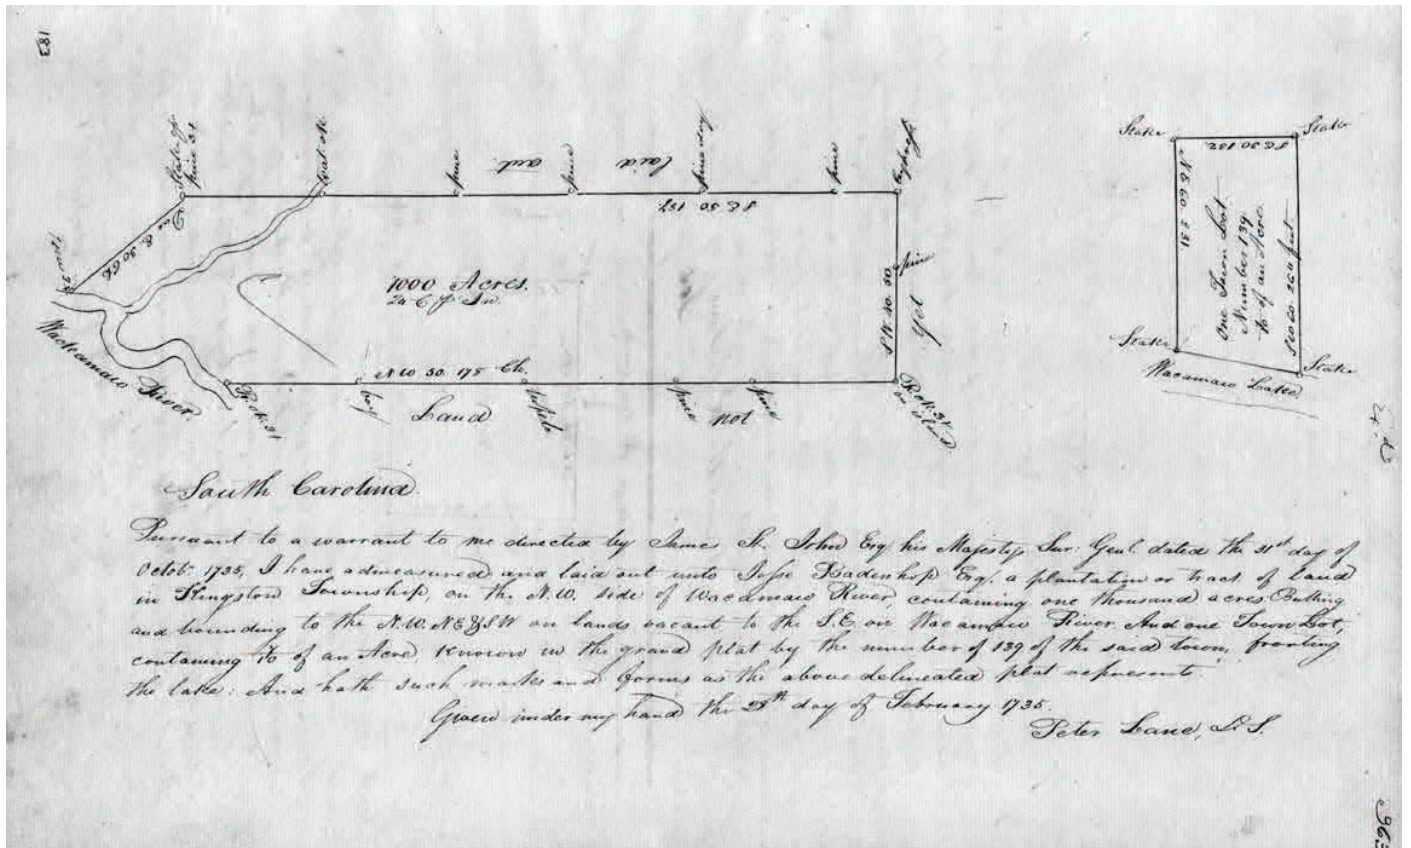 183
Stake
pine 3x
pine
aut.
pine
laid
pine
Cypress
S E 50 157.
Due E. 30 Ch
1000 Acres.
pine
S W. 40. 50.
Yet
Wackamaw River.
N W 50 175 Ch.
bay
Land
pine
pine
not
Stake
Stake
S E 30 132
N E 60 231
One Town Lot
Number 139
of an Acre.
S W 60 260 feet
Stake
Stake
Wacamaw Lake
South Carolina.
Pursuant to a warrant to me directed by James St. John Esq his Majestys Sur: Genl. dated the 31st day of
Octobr. 1735, I have admeasured and laid out unto Jesse Badenhop Esq. a plantation or tract of land
in Kingston Township, on the N.W. side of Wacamaw River, containing one thousand acres. Butting
and bounding to the N.W. NE & SW on lands vacant to the S.E. on Wacamaw River. And one Town Lot,
containing of an Acre. Known in the grand plat by the number of 139 of the said town, fronting
the lake: And hath such marks and forms as the above delineated plat represents.
Given under my hand the 28th day of February 1735.
Peter Lane, D.S.
963